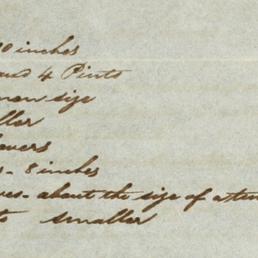 0 inches
and 4 Pints
man size
ller
avers
8 inches
about the size of a
to smaller